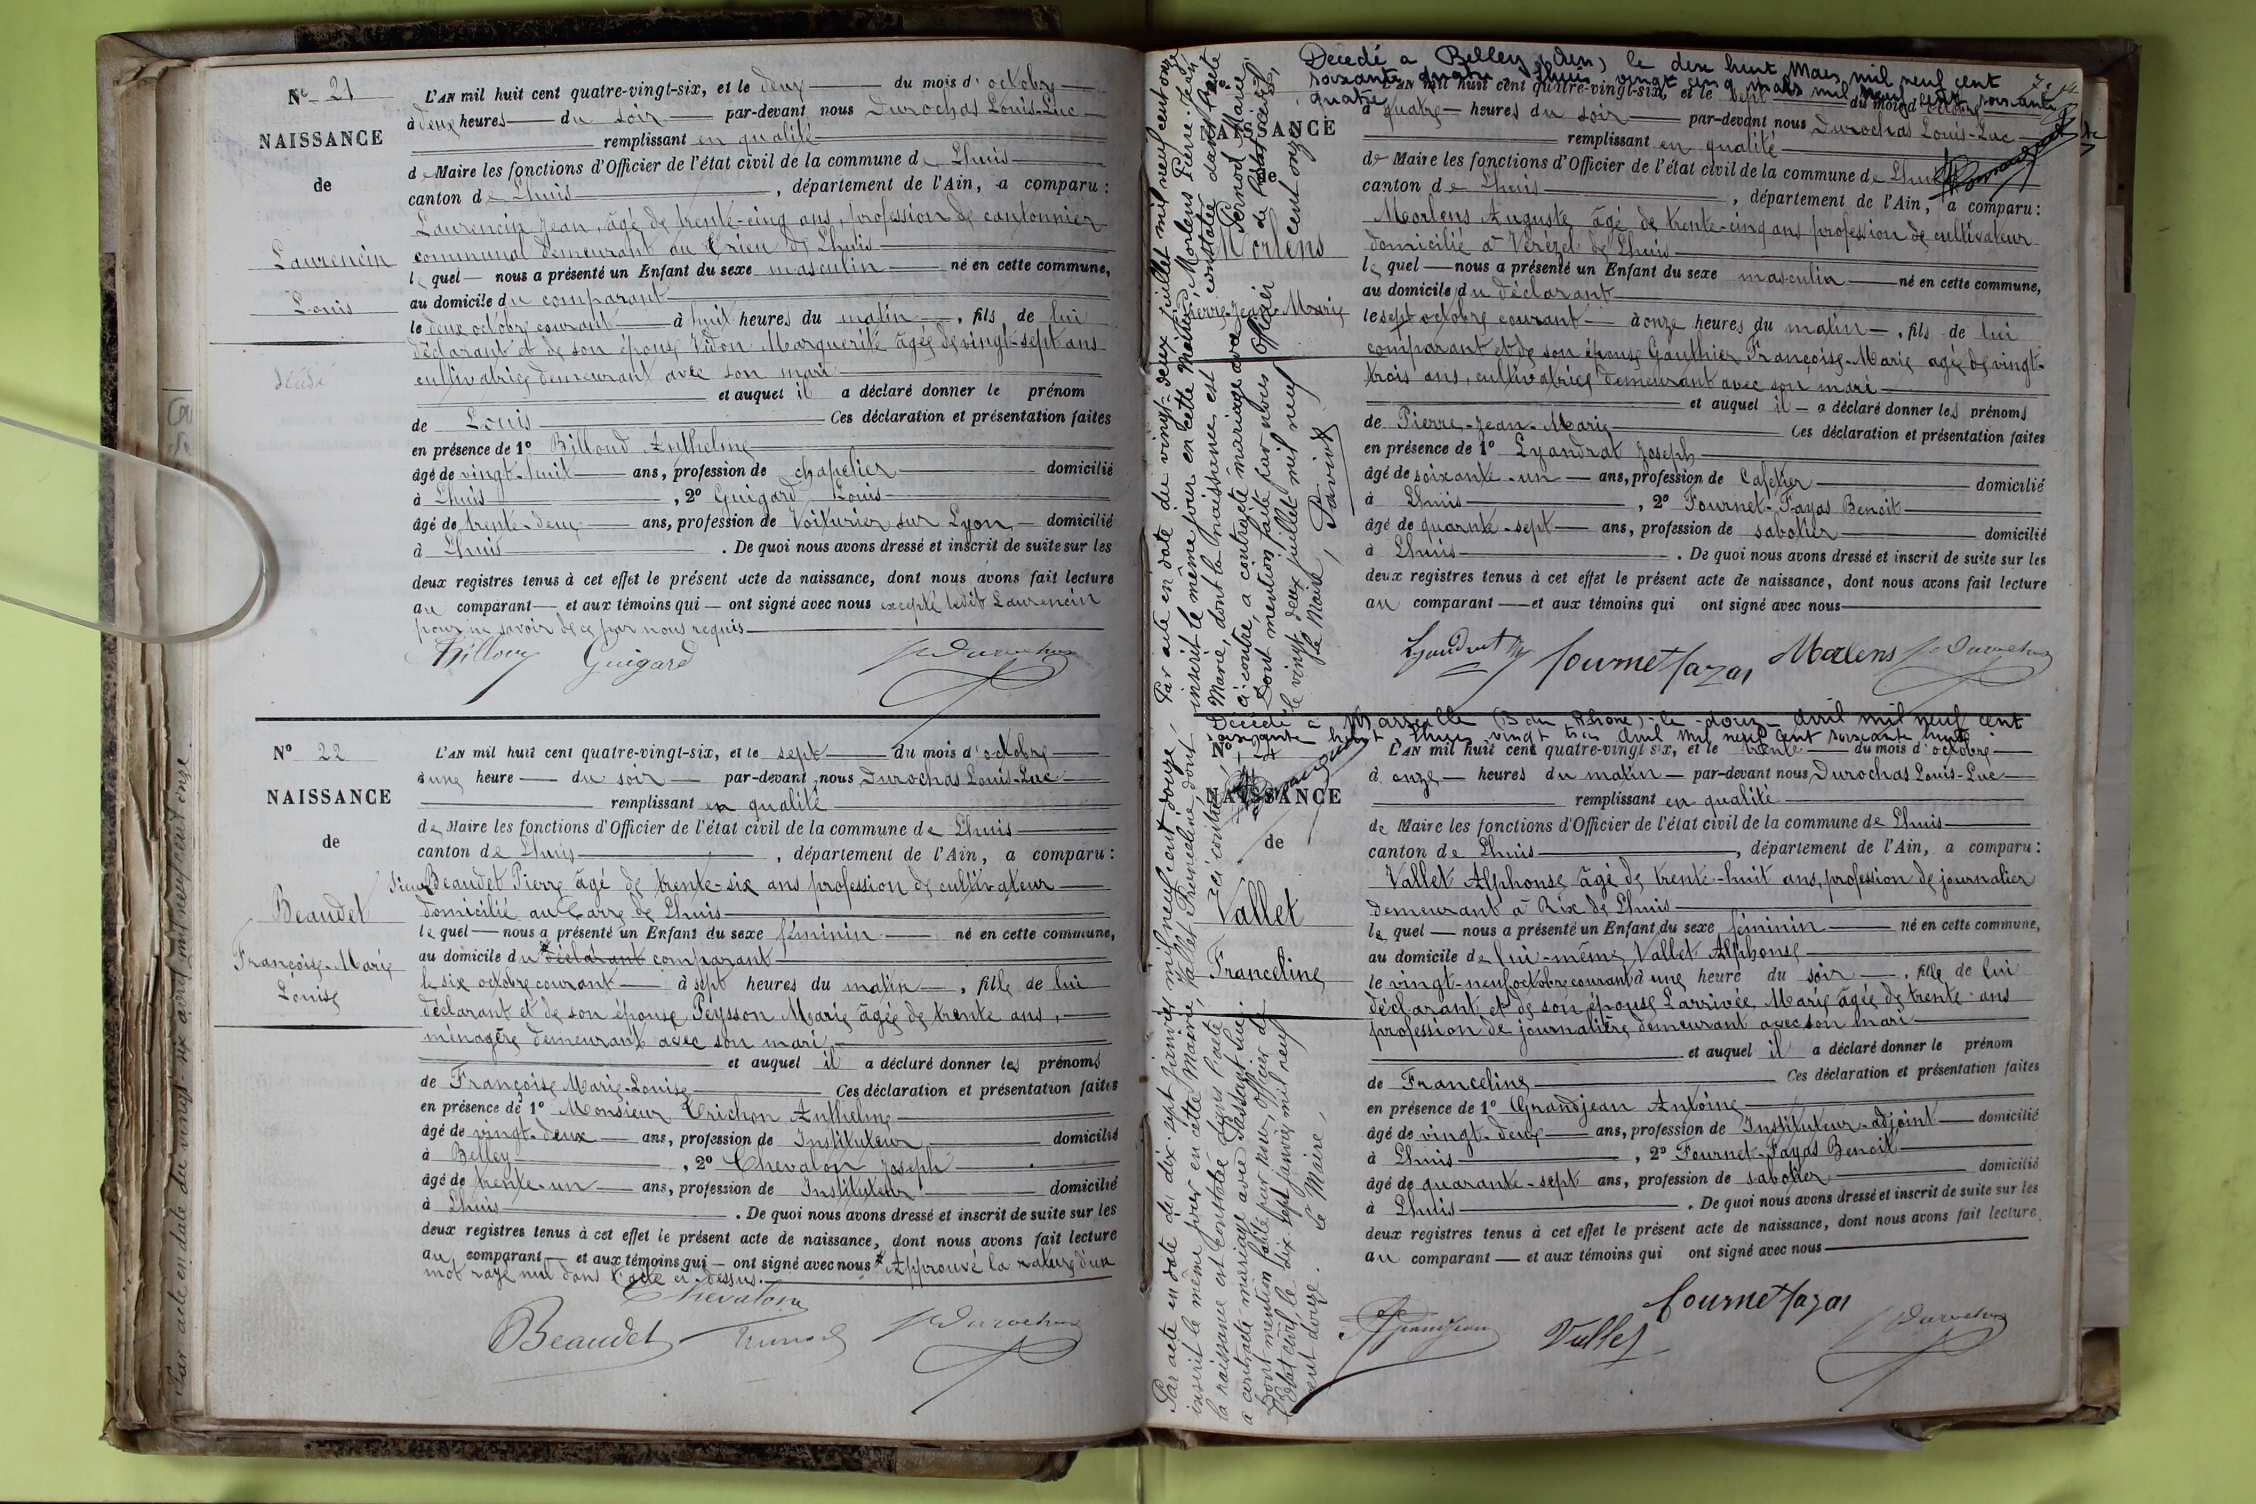 Nº 21
NAISSANCE
de
Laurencin
Louis
décédé
L'AN mil huit cent quatre-vingt-six, et le deux du mois d'octobre
à deux heures du soir par-devant nous Durochas Louis-Luc
remplissant en qualité
de Maire les fonctions d'Officier de l'état civil de la commune de Lhuis
canton de Lhuis, département de l'Ain, a comparu:
Laurencin Jean, âgé de trente-cinq ans, profession de cantonnier
communal demeurant au Crieu de Lhuis
lequel nous a présenté un Enfant du sexe masculin né en cette commune,
au domicile du comparant
le deux octobre courant à huit heures du matin, fils de lui
déclarant et de son épouse Vidon Marguerite âgée de vingt-sept ans
cultivatrice demeurant avec son mari
et auquel il a déclaré donner le prénom
de Louis Ces déclaration et présentation faites
en présence de 1º Billoud Anthelme
âgé de vingt-huit ans, profession de chapelier domicilié
à Lhuis, 2º Guigard Louis
âgé de trente-deux ans, profession de Voiturier sur Lyon domicilié
à Lhuis. De quoi nous avons dressé et inscrit de suite sur les
deux registres tenus à cet effet le présent acte de naissance, dont nous avons fait lecture
au comparant et aux témoins qui ont signé avec nous excepté ledit Laurencin
pour ne savoir de ce par nous requis
Billoud Guigard Ls Durochas
Nº 22
NAISSANCE
de
Beaudet
Françoise-Marie
Louise
L'AN mil huit cent quatre-vingt-six, et le sept du mois d'octobre
à une heure du soir par-devant nous Durochas Louis-Luc
remplissant en qualité
de Maire les fonctions d'Officier de l'état civil de la commune de Lhuis
canton de Lhuis, département de l'Ain, a comparu:
Sieur Beaudet Pierre âgé de trente-six ans profession de cultivateur
domicilié au Carre de Lhuis
lequel nous a présenté un Enfant du sexe féminin né en cette commune,
au domicile du déclarant comparant
le six octobre courant à sept heures du matin, fille de lui
déclarant et de son épouse Peysson Marie âgée de trente ans,
ménagère demeurant avec son mari
et auquel il a déclaré donner les prénoms
de Françoise Marie-Louise Ces déclaration et présentation faites
en présence de 1º Monsieur Trichon Anthelme
âgé de vingt-deux ans, profession de Instituteur domicilié
à Belley, 2º Chevalon Joseph
âgé de trente-un ans, profession de Instituteur domicilié
à Lhuis. De quoi nous avons dressé et inscrit de suite sur les
deux registres tenus à cet effet le présent acte de naissance, dont nous avons fait lecture
au comparant et aux témoins qui ont signé avec nous * Approuvé la rature d'un
mot rayé nul dans l'acte ci-dessus.
Chevalon
Beaudet Ls Durochas
Par acte en date du vingt-six avril mil neuf cent onze
Décédé a Belley (Ain) le dix huit Mars mil neuf cent
soixante quatre. Lhuis vingt cinq mars mil neuf cent soixante
quatre
NAISSANCE
de
Morlens
Pierre-Jean-Marie
L'AN mil huit cent quatre-vingt-six, et le sept du mois d'octobre
à quatre heures du soir par-devant nous Durochas Louis-Luc
remplissant en qualité
de Maire les fonctions d'Officier de l'état civil de la commune de Lhuis
canton de Lhuis, département de l'Ain, a comparu:
Morlens Auguste âgé de trente-cinq ans profession de cultivateur
domicilié à Vérizel de Lhuis
lequel nous a présenté un Enfant du sexe masculin né en cette commune,
au domicile du déclarant
le sept octobre courant à onze heures du matin, fils de lui
comparant et de son épouse Gauthier Françoise-Marie âgé de vingt-
trois ans, cultivatrice demeurant avec son mari
et auquel il a déclaré donner les prénoms
de Pierre-Jean-Marie Ces déclaration et présentation faites
en présence de 1º Lyandrat Joseph
âgé de soixante-un ans, profession de Cafetier domicilié
à Lhuis, 2º Fournet-Fayas Benoît
âgé de quarante-sept ans, profession de sabotier domicilié
à Lhuis. De quoi nous avons dressé et inscrit de suite sur les
deux registres tenus à cet effet le présent acte de naissance, dont nous avons fait lecture
au comparant et aux témoins qui ont signé avec nous
Lyandrat Fournet fayas Morlens Ls Durochas
Par acte en date du vingt-deux juillet mil neuf cent onze
inscrit le même jour en cette Mairie, Morlens Pierre-Jean
Marie, dont la naissance est constatée dans l'acte
ci-contre, a contracté mariage avec Pernod Marie
Dont mention faite par nous Officier de l'état civil,
le vingt deux juillet mil neuf cent onze.
Le Maire, Parivet
Décédée à Marseille (B du Rhône) le douze avril mil neuf cent
soixante huit. Lhuis vingt trois avril mil neuf cent soixante huit
NAISSANCE
de
Vallet
Franceline
L'AN mil huit cent quatre-vingt six, et le trente du mois d'octobre
à onze heures du matin par-devant nous Durochas Louis-Luc
remplissant en qualité
de Maire les fonctions d'Officier de l'état civil de la commune de Lhuis
canton de Lhuis, département de l'Ain, a comparu:
Vallet Alphonse âgé de trente-huit ans, profession de journalier
demeurant à Rix de Lhuis
lequel nous a présenté un Enfant du sexe féminin né en cette commune,
au domicile de lui-même Vallet Alphonse
le vingt-neuf octobre courant à une heure du soir, fille de lui
déclarant et de son épouse Larrivée Marie âgée de trente ans
profession de journalière demeurant avec son mari
et auquel il a déclaré donner le prénom
de Franceline Ces déclaration et présentation faites
en présence de 1º Grandjean Antoine
âgé de vingt-deux ans, profession de Instituteur-adjoint domicilié
à Lhuis, 2º Fournet-Fayas Benoît
âgé de quarante-sept ans, profession de sabotier domicilié
à Lhuis. De quoi nous avons dressé et inscrit de suite sur les
deux registres tenus à cet effet le présent acte de naissance, dont nous avons fait lecture
au comparant et aux témoins qui ont signé avec nous
Grandjean Vallet Fournet fayas Ls Durochas
Par acte en date du dix-sept janvier mil neuf cent douze,
inscrit le même jour en cette Mairie, Vallet Franceline dont
la naissance est constatée dans l'acte ci-contre,
a contracté mariage avec
Dont mention faite par nous Officier de
l'état civil le dix-sept janvier mil neuf
cent douze. Le Maire,